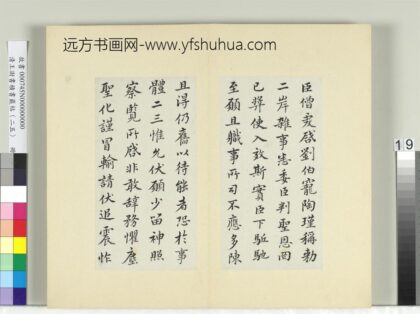 远方书画网-www.yfshuhua.com
臣僧虔啓劉伯寵陶瑾稱勑
二岸雜事悉委臣判聖恩罔
已驛使入啓斯實臣下駈馳
至願且職事所司不應多陳
且得仍舊以待能者恐於事
體二三惟允伏願少留神照
察覽所啓非敢辭務懼塵
聖化謹冒輸請伏追震怍
19